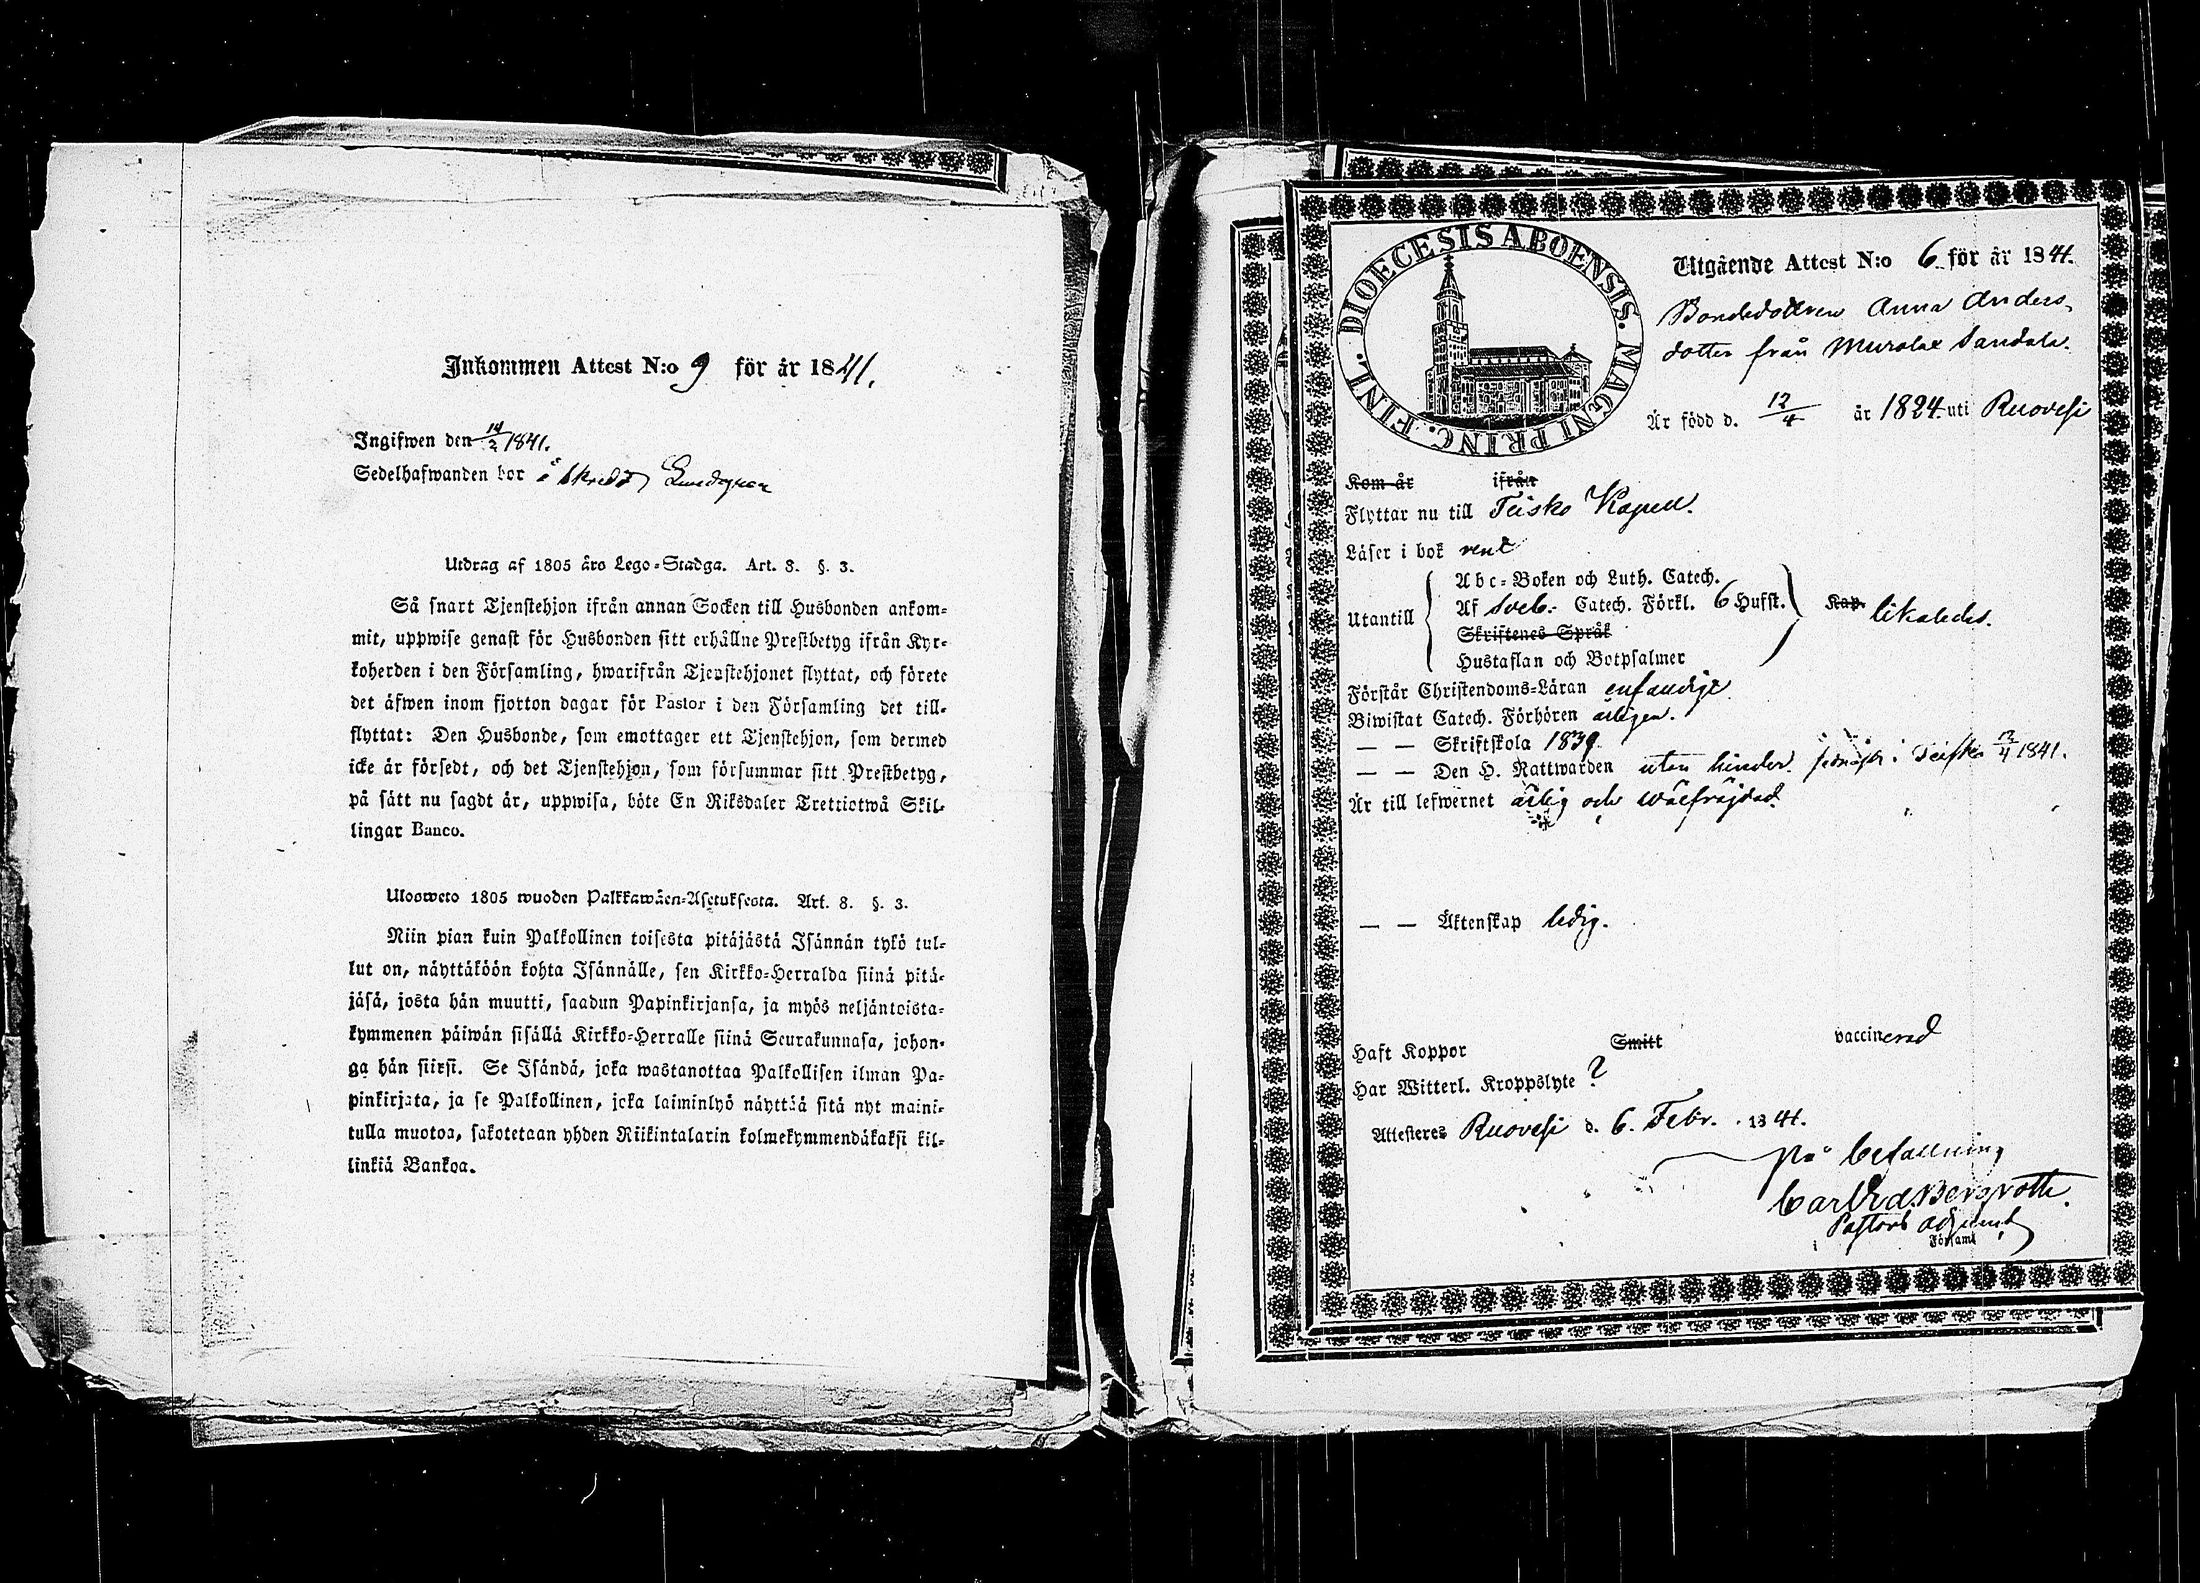 Inkommen Attest N:o 9 för år 1841.
Ingifwen den 14/2 1841.
Sedelhafwanden bor å
Utdrag af 1805 års Lego-Stadga. Art. 8. §. 3.
Så snart Tjenstehjon ifrån annan Socken till Husbonden ankom-
mit, uppwise genast för Husbonden sitt erhållne Prestbetyg ifrån Kyr-
koherden i den Församling, hwarifrån Tjenstehjonet flyttat, och förete
det äfwen inom fjorton dagar för Pastor i den Församling det till-
flyttat: Den Husbonde, som emottager ett Tjenstehjon, som dermed
icke är försedt, och det Tjenstehjon, som försummar sitt Prestbetyg,
på sätt nu sagdt är, uppwisa, böte En Riksdaler Trettiotwå Skil-
lingar Banco.
Uloosweto 1805 wuoden Palkkawäen-Asetuksesta. Art. 8. §. 3.
Niin pian kuin Palkollinen toisesta pitäjästä Isännän tykö tul-
lut on, näyttäköön kohta Isännälle, sen Kirkko-Herralda siinä pitä-
jäsä, josta hän muutti, saadun Papinkirjansa, ja myös neljäntoista-
kymmenen päiwän sisällä Kirkko-Herralle siinä Seurakunnasa, johon-
ga hän siirsi. Se Isändä, joka wastanottaa Palkollisen ilman Pa-
pinkirjata, ja se Palkollinen, joka laiminlyö näyttää sitä nyt maini-
tulla muotoa, sakotetaan yhden Riikintalarin kolmekymmendäkaksi kil-
linkiä Bankoa.
DIOECESIS ABOENSIS. MAGNI PRINC. FINL.
Utgående Attest N:o 6 för år 1841.
Bondedottren Anna Anders-
dotter från Murolax Sandala.
Är född d. 12/4 år 1824 uti Ruovesi
Kom år ifrån
Flyttar nu till Teisko Kapell.
Läser i bok rent
Abc-Boken och Luth. Catech.
Utantill Af Sveb. Catech. Förkl. 6 Hufst. Kap. likaledes.
Skriftenes Språk
Hustaflan och Botpsalmer
Förstår Christendoms-Läran enfaldigt
Biwistat Catech. Förhören årligen.
— — Skriftskola 1839.
— — Den H. Nattwarden utan hinder. i Teisko 1841.
Är till lefwernet ärlig och wälfräjdad
— — Äktenskap ledig.
Haft Koppor Smitt vaccinerad
Har Witterl. Kroppslyte ?
Attesteres Ruovesi d. 6. Febr. 1841.
På befallning
Carl Ed. Bergroth.
Pastors adjunct
i Församl